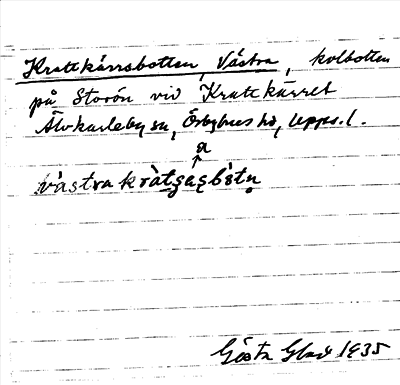 Krattkärrsbotten, Västra, kolbotten
på Storön vid Krattkärret
Älvkarleby sn, Örbyhus hd, Upps. l.
a
västra kràtsasbòtn
Gösta Glad 1935